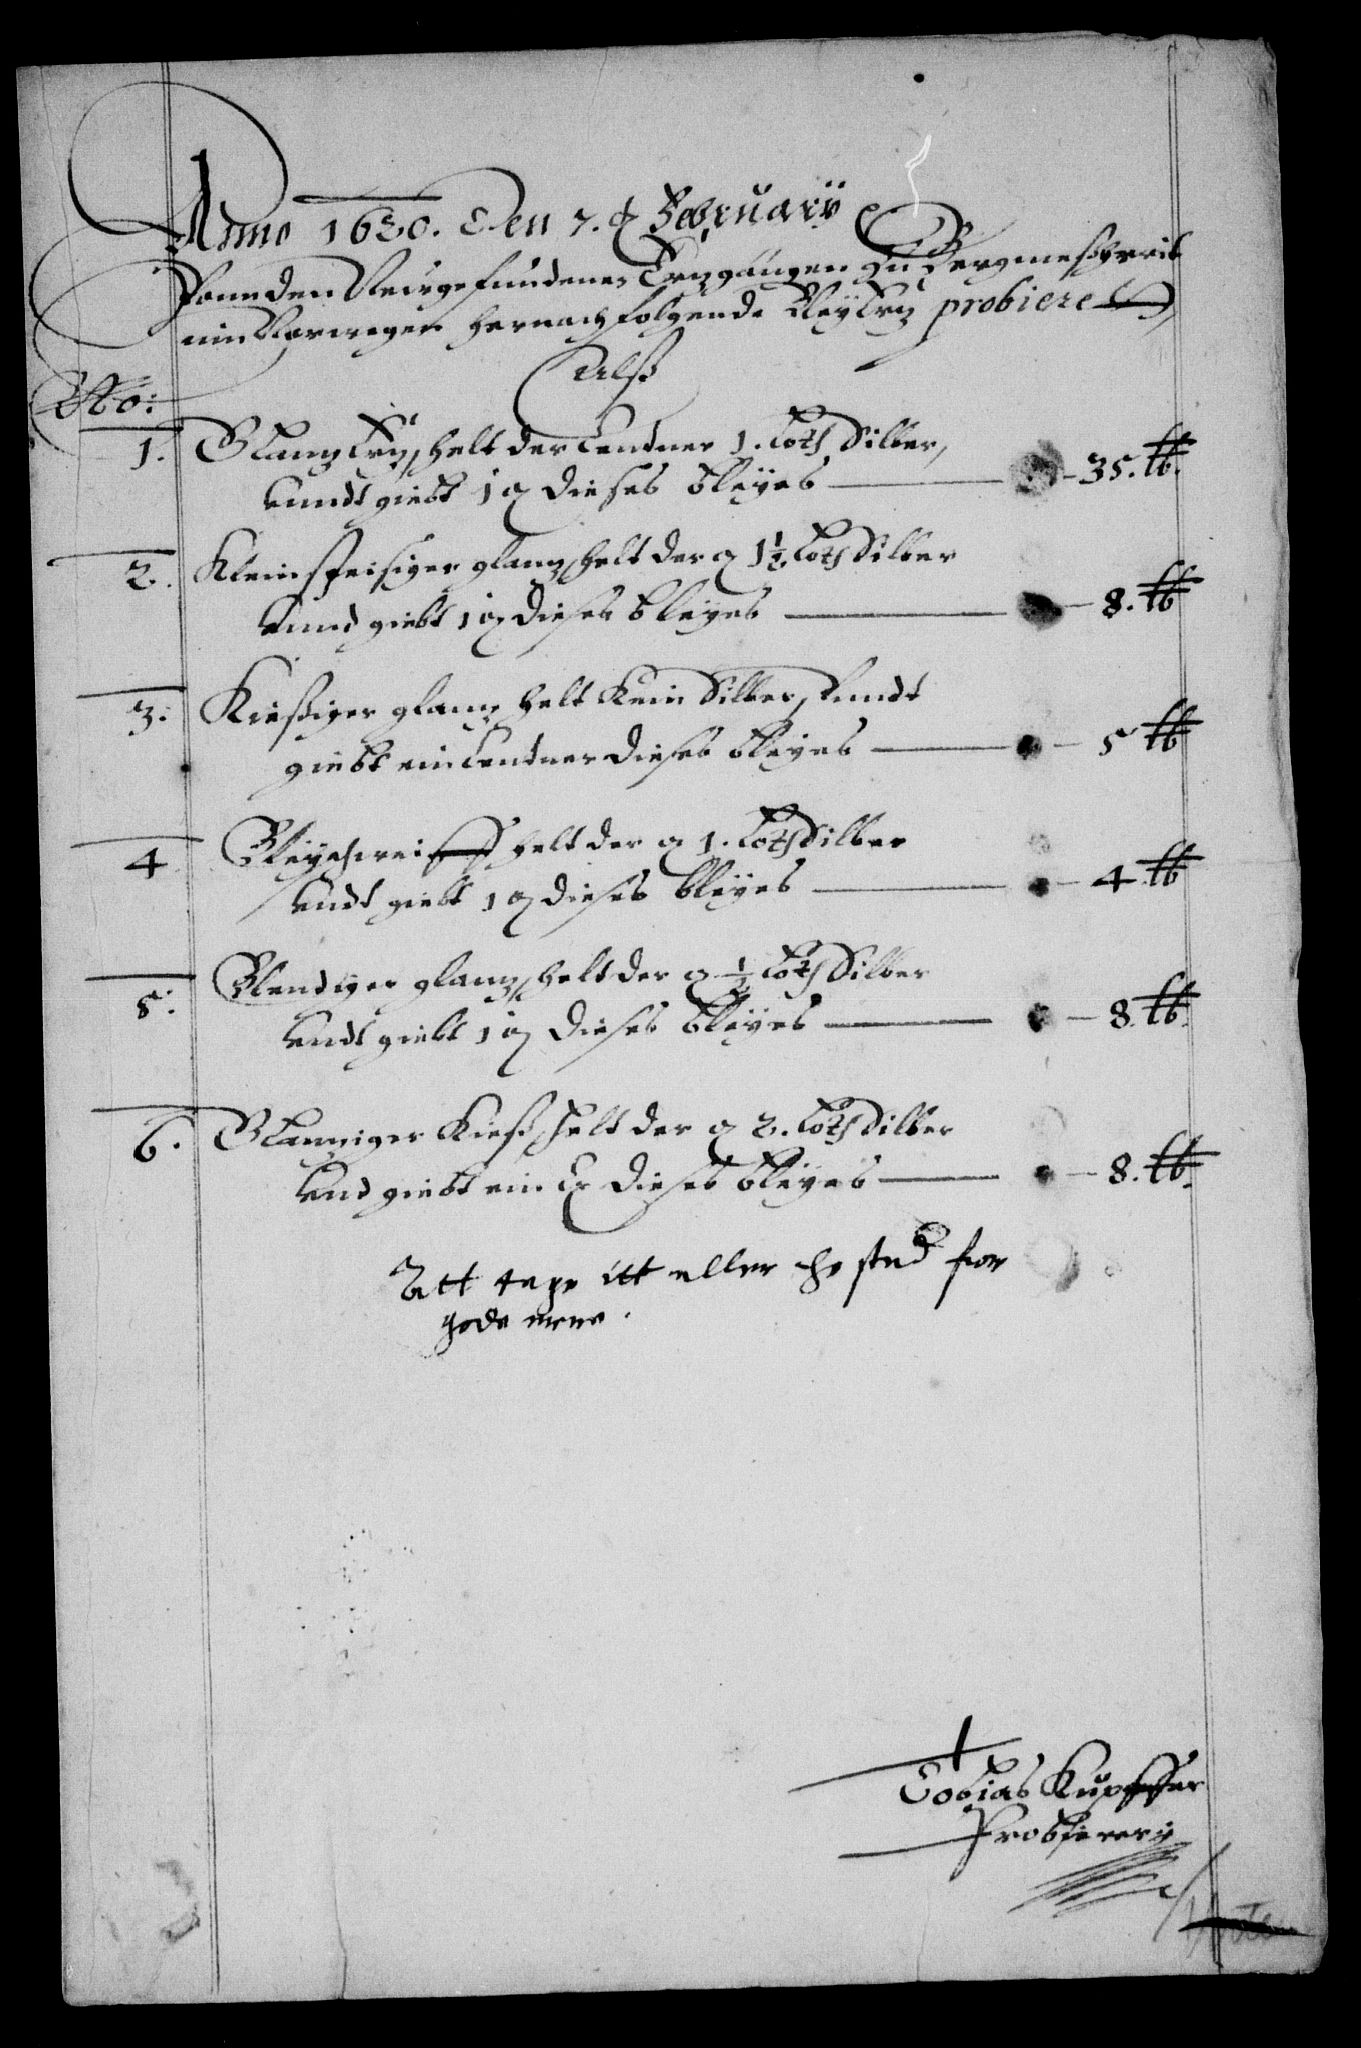 Anno 1630. Den 7. Februarÿ
Vonn den Neuwgefundenen Ertzgängen zu Bergmeß
inn Norwegen hernachfolgende Bleÿ Ertz probiere
Alß
No:
1. Glantz Ertz, helt der Centner 1. Loth Silber,
vnndt giebt 1 ꝗ dieses bleÿes — 35. ℔.
2. Klein speisiger glantz, helt der ꝗ 1½ Loth Silber
vnnd giebt 1 ꝗ dieses bleÿes — 8. ℔
3. Kießiger glantz helt Kein Silber, vnndt
giebt ein Centner dieses bleÿes — 5 ℔
4 Bleÿschweiff helt der ꝗ 1. Loth Silber
vndt giebt 1 ꝗ dieses bleÿes — 4 ℔
5. Blendiger glantz, helt der ꝗ ½ Loth Silber
vndt giebt 1 ꝗ dieses bleÿes — 8. ℔.
6. Glantziger Kieß helt der ꝗ 2. Loth Silber
vnd giebt ein Cr dieses bleÿes — 8. ℔.
Att tage itt eller sted for
gode
Tobias Kupffer
Probierer